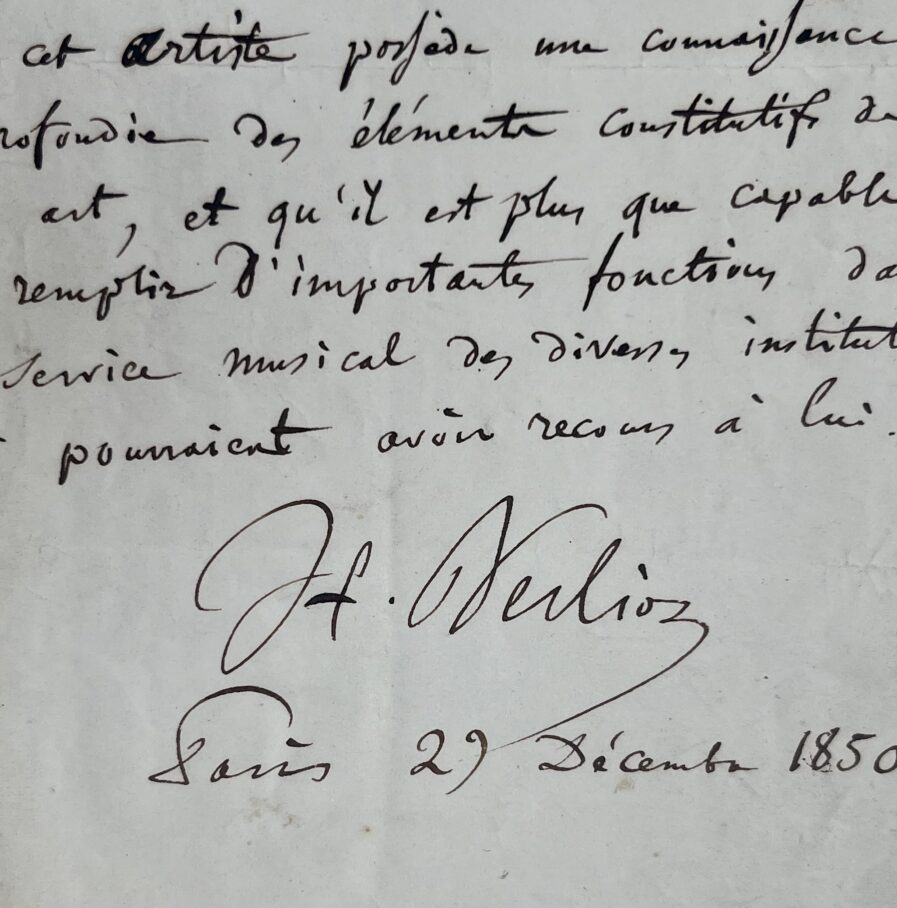 cet artiste possède une connaissance
rofondie des éléments constitutifs de
art, et qu'il est plus que capable
remplir d'importantes fonctions da
service musical des diverses institut
i pourraient avoir recours à lui.
H. Berlioz
Paris 29 Décembre 1850